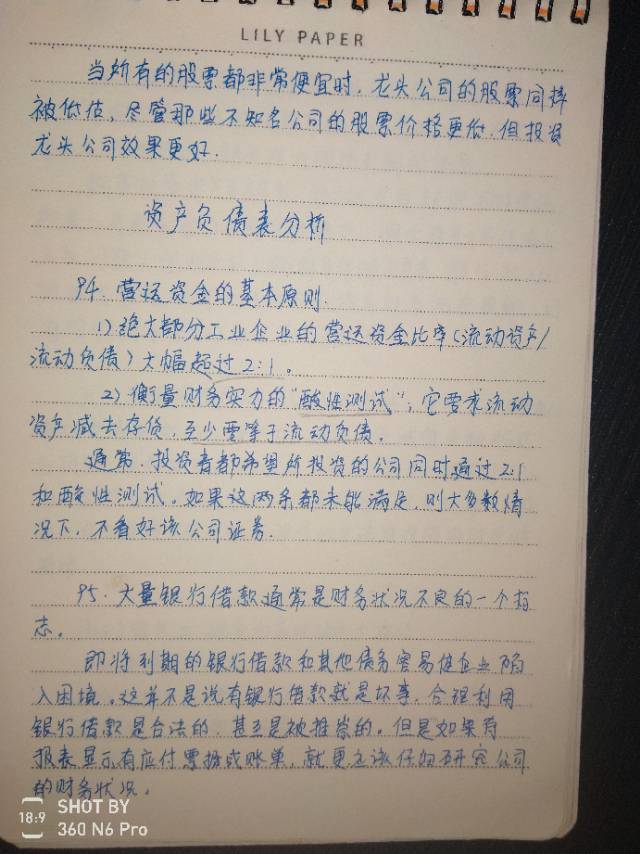 LILY PAPER
当所有的股票都非常便宜时，龙头公司的股票同样
被低估。尽管那些不知名公司的股票价格更低，但投资
龙头公司效果更好.
资产负债表分析
94. 营运资金的基本原则.
1) 绝大部分工业企业的营运资金比率(流动资产/
流动负债)大幅超过2:1。
2) 衡量财务实力的"酸性测试"，它要求流动
资产减去存货，至少要等于流动负债。
通常，投资者都希望所投资的公司同时通过2:1
和酸性测试。如果这两条都未能满足，则大多数情
况下，不看好该公司证券.
95. 大量银行借款通常是财务状况不良的一个标
志。
即将到期的银行借款和其他债务容易使企业陷
入困境。这并不是说有银行借款就是坏事，合理利用
银行借款是合法的，甚至是被推崇的。但是如果有
报表显示有应付票据或账单，就更应该仔细研究公司
的财务状况。
18:9
SHOT BY
360 N6 Pro